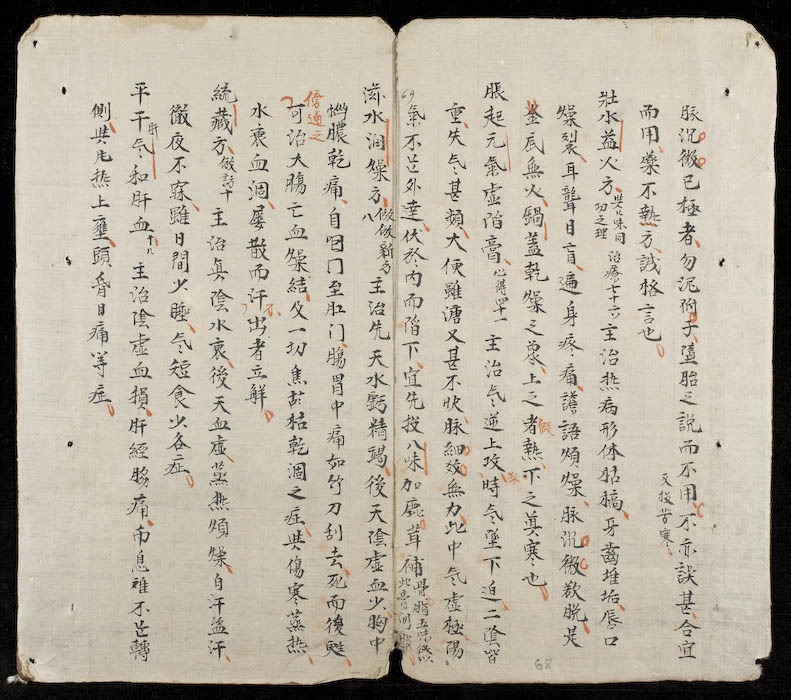 脉沉微已極者勿泥附子墮胎之說而不用不亦誤甚合宜
而用藥不熱方誠格言也
反投苦寒
壯水益火方
與八味同功之理
治療七十六
主治熱病形体枯槁牙齒堆垢唇口
燥裂耳聾目盲遍身疼痛譫語煩燥脉沉微欲脱是
釜底無火鍋盖乾燥之象上之假者熱下之真寒也
脹起元氣虛陷膏
心得四十一
主治气逆上攻時气墜下迫二陰皆
重失气甚頻大便雖溏又甚不快脉細數無力此中气虛極陽
氣不足外達伏於內而陷下宜先投八味加鹿茸補骨脂五味後以
此膏間服
69
滋水潤燥方
倣倣新方八
主治先天水虧精竭後天陰虛血少胸中
惱膿乾痛自囟门至肛门腸胃中痛如竹刀刮去死而後甦
傍通之
可治大腸亡血燥結及一切焦枯乾涸之症與傷寒蒸熱
水衰血涸屡散而汗不出者立解
統藏方
倣詩十
主治真陰水衰後天血虛蒸熱煩燥自汗盗汗
徹夜不寐雖日間少睡气短食少各症
平干气和肝血
十八
主治陰虛血損肝經脇痛而息难不足轉
側與凡熱上壅頭昏目痛等症
68